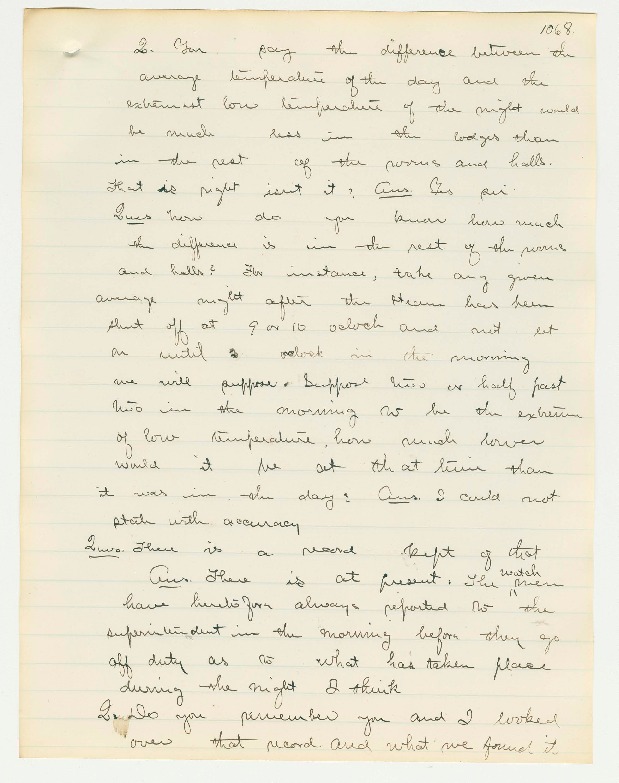 1068.
Q. You say the difference between the
average temperature of the day and the
extremest low temperature of the night would
be much less in the lodges than
in the rest of the rooms and halls.
That is right isnt it? Ans. Yes sir
Ques how do you know how much
the difference is in the rest of the rooms
and halls? For instance, take any given
average night after the steam has been
shut off at 9 or 10 oclock and not let
on until 3 oclock in the morning
we will suppose. Suppose two or half past
two in the morning to be the extreme
of low temperature, how much lower
would it be at that time than
it was in the day? Ans. I could not
state with accuracy
Ques. There is a record kept of that
Ans. There is at present. The watch men
have heretofore always reported to the
superintendent in the morning before they go
off duty as to what has taken place
during the night I think
Q. Do you remember you and I looked
over that record. and what we found it